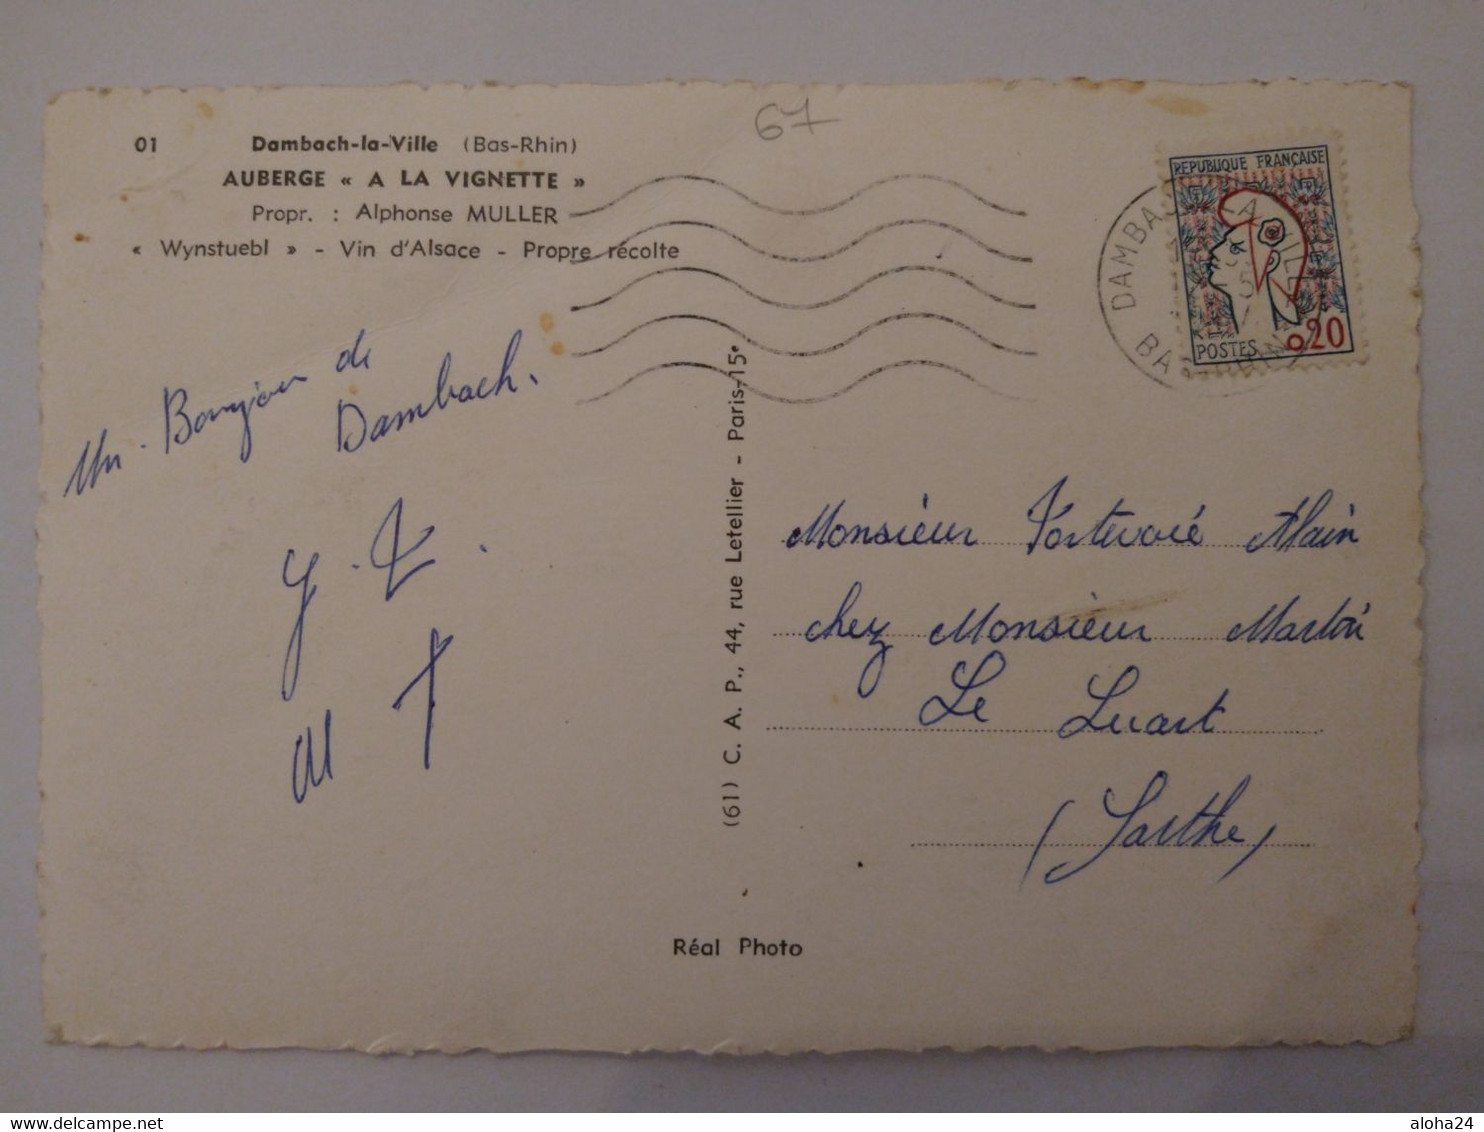 67
01 Dambach-la-Ville (Bas-Rhin)
AUBERGE « A LA VIGNETTE »
Propr. : Alphonse MULLER
« Wynstuebl » - Vin d'Alsace - Propre récolte
REPUBLIQUE FRANÇAISE
POSTES 0,20
Un Bonjour de
Dambach.
(61) C. A. P., 44, rue Letellier - Paris-15e
Monsieur Portevoié Alain
chez Monsieur
Le Luart
(Sarthe)
Réal Photo
delcampe.net
aloha24